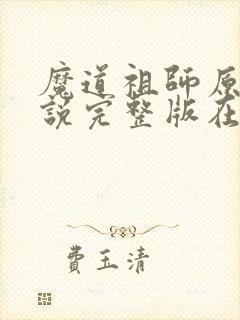 魔道祖師原
說完整版在
費玉清